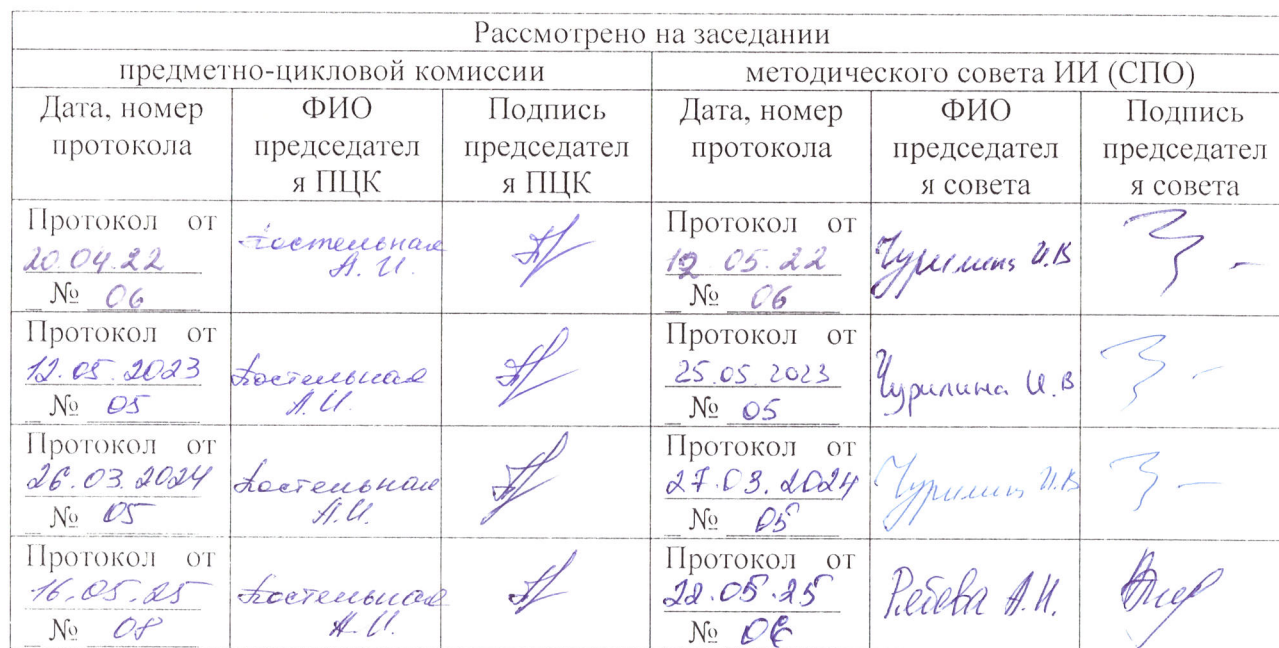 Рассмотрено на заседании
предметно-цикловой комиссии
методического совета ИИ (СПО)
Дата, номер протокола
ФИО председател я ПЦК
Подпись председател я ПЦК
Дата, номер протокола
ФИО председател я совета
Подпись председател я совета
Протокол от
20.04.22
№ 06
Постельная
А. И.
Протокол от
12 05.22
№ 06
Чурилина И.В
Протокол от
12.05.2023
№ 05
Постельная
А.И.
Протокол от
25.05.2023
№ 05
Чурилина И.В
Протокол от
26.03.2024
№ 05
Постельная
А.И.
Протокол от
27.03.2024
№ 05
Чурилина И.В
Протокол от
16.05.25
№ 08
Постельная
А.И.
Протокол от
22.05.25
№ 06
А.Н.